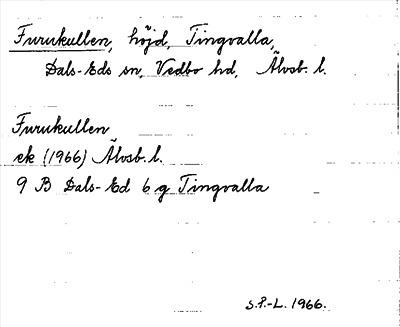 Furukullen, höjd, Tingvalla,
Dals-Eds sn, Vedbo hd, Älvsb. l.
Furukullen
ek (1966) Älvsb. l.
9 B Dals-Ed 6 g Tingvalla
S.P.-L. 1966.